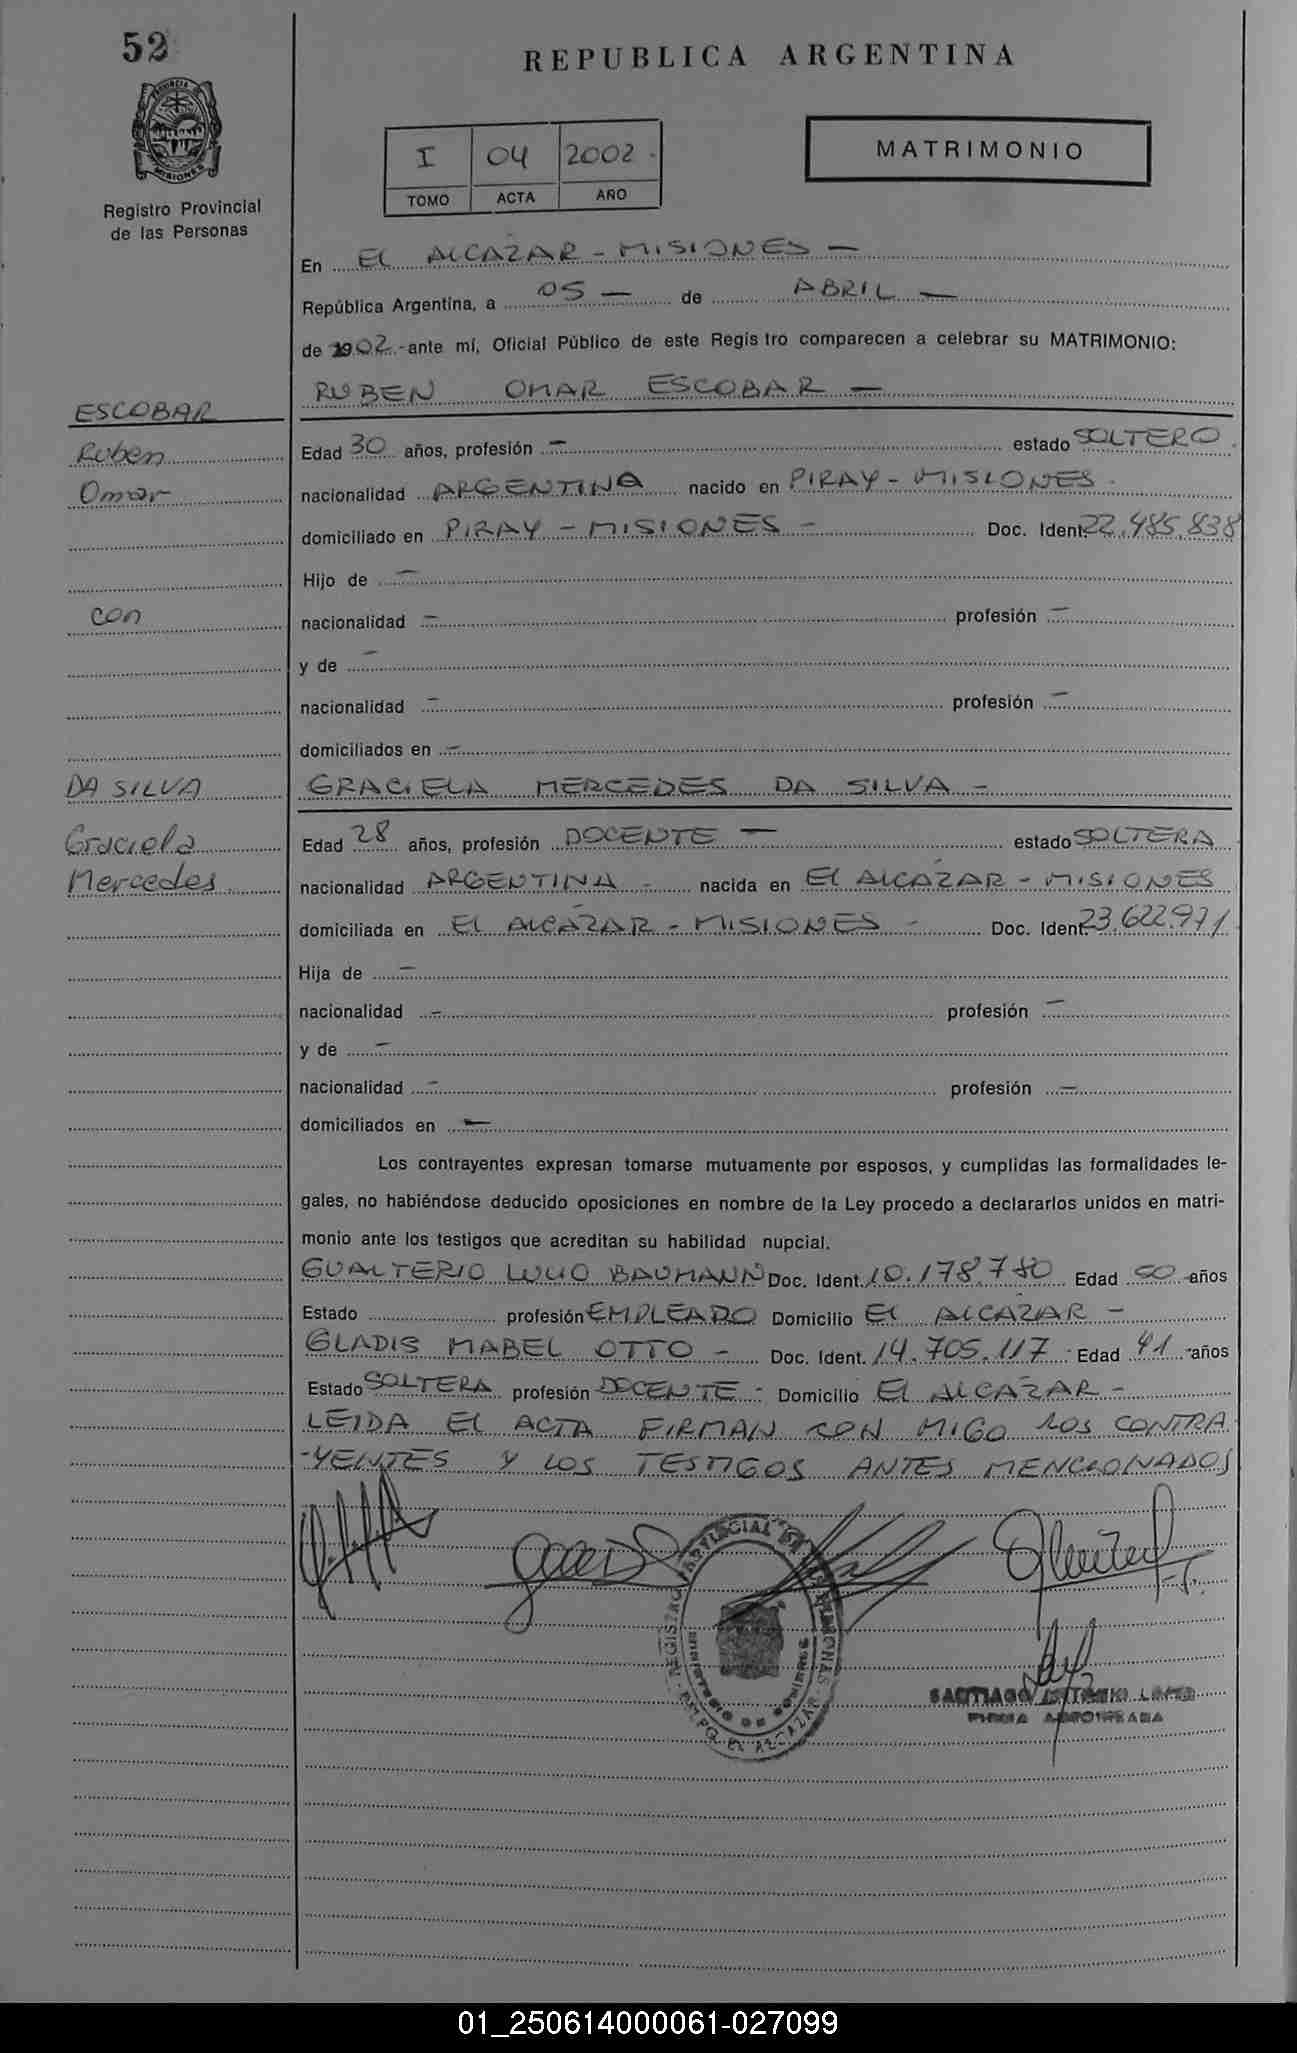 52
REPUBLICA ARGENTINA
PROVINCIA DE
MISIONES
Registro Provincial
de las Personas
I 04 2002.
TOMO ACTA AÑO
MATRIMONIO
En EL ALCAZAR - MISIONES -
República Argentina, a 05 - de ABRIL -
de 2002.- ante mí, Oficial Público de este Registro comparecen a celebrar su MATRIMONIO:
RUBEN OMAR ESCOBAR -
ESCOBAR
Ruben
Omar
con
Edad 30 años, profesión - estado SOLTERO.
nacionalidad ARGENTINA nacido en PIRAY - MISIONES.
domiciliado en PIRAY - MISIONES - Doc. Ident. 22.485.838
Hijo de -
nacionalidad - profesión -
y de -
nacionalidad - profesión -
domiciliados en -
DA SILVA
Graciela
Mercedes
GRACIELA MERCEDES DA SILVA -
Edad 28 años, profesión DOCENTE - estado SOLTERA
nacionalidad ARGENTINA - nacida en EL ALCÁZAR - MISIONES
domiciliada en EL ALCÁZAR - MISIONES - Doc. Ident. 23.622.971
Hija de -
nacionalidad - profesión -
y de -
nacionalidad - profesión -
domiciliados en -
Los contrayentes expresan tomarse mutuamente por esposos, y cumplidas las formalidades le-
gales, no habiéndose deducido oposiciones en nombre de la Ley procedo a declararlos unidos en matri-
monio ante los testigos que acreditan su habilidad nupcial.
GUALTERIO LUCIO BAUMANN Doc. Ident. 10.178.780 Edad 50 años
Estado profesión EMPLEADO Domicilio EL ALCAZAR -
GLADIS MABEL OTTO - Doc. Ident. 14.705.117 Edad 41 años
Estado SOLTERA profesión DOCENTE - Domicilio EL ALCAZAR -
LEIDA EL ACTA FIRMAN CON MIGO LOS CONTRA
-YENTES Y LOS TESTIGOS ANTES MENCIONADOS
REGISTRO PROVINCIAL DE LAS PERSONAS
MINISTERIO DE GOBIERNO
EL ALCAZAR
SANTIAGO ANTONIO LOPEZ
FIRMA AUTORIZADA
01_250614000061-027099